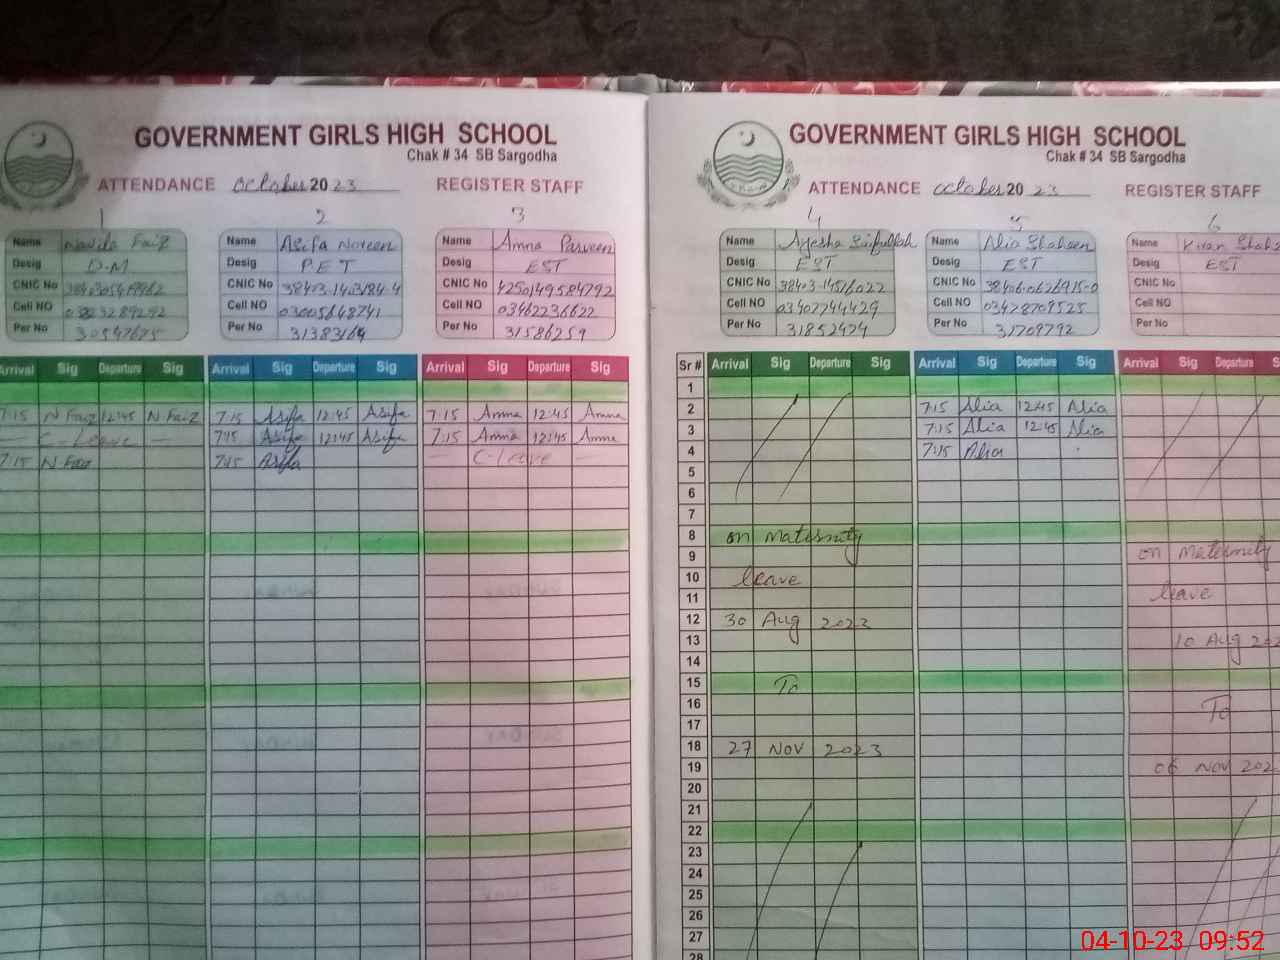 GOVERNMENT GIRLS HIGH SCHOOL
Chak # 34 SB Sargodha
ATTENDANCE October 2023 REGISTER STAFF
1 2 3
Name Navila Faiz
Desig D.M
CNIC No
Cell NO
Per No 30547675
Name Asifa Noreen
Desig P.E.T
CNIC No
Cell NO 03005648741
Per No 31383164
Name Amna Parveen
Desig EST
CNIC No 4250149584792
Cell NO 03462236622
Per No 31586259
Arrival Sig Departure Sig Arrival Sig Departure Sig Arrival Sig Departure Sig
7:15 N Faiz 12:45 N Faiz 7:15 Asifa 12:45 Asifa 7:15 Amna 12:45 Amna
— C-Leave — 7:15 Asifa 12:45 Asifa 7:15 Amna 12:45 Amna
7:15 N Faiz 7:15 Asifa — C-leave —
GOVERNMENT GIRLS HIGH SCHOOL
Chak # 34 SB Sargodha
ATTENDANCE October 2023 REGISTER STAFF
4 5 6
Name Ayesha Saifullah
Desig EST
CNIC No 38403-14516022
Cell NO 03407744429
Per No 31852474
Name Alia Shaheen
Desig EST
CNIC No 38406.0626915-0
Cell NO 03478707525
Per No 31708792
Name Kiran
Desig EST
CNIC No
Cell NO
Per No
Sr # Arrival Sig Departure Sig Arrival Sig Departure Sig Arrival Sig Departure
1
2 7:15 Alia 12:45 Alia
3 7:15 Alia 12:45 Alia
4 7:15 Alia
5
6
7
8 on Maternity
9 on Maternity
10 leave
11 leave
12 30 Aug 2023
13 10 Aug
14
15 To
16 To
17
18 27 Nov 2023
19 06 Nov
20
21
22
23
24
25
26
27
28
04-10-23 09:52